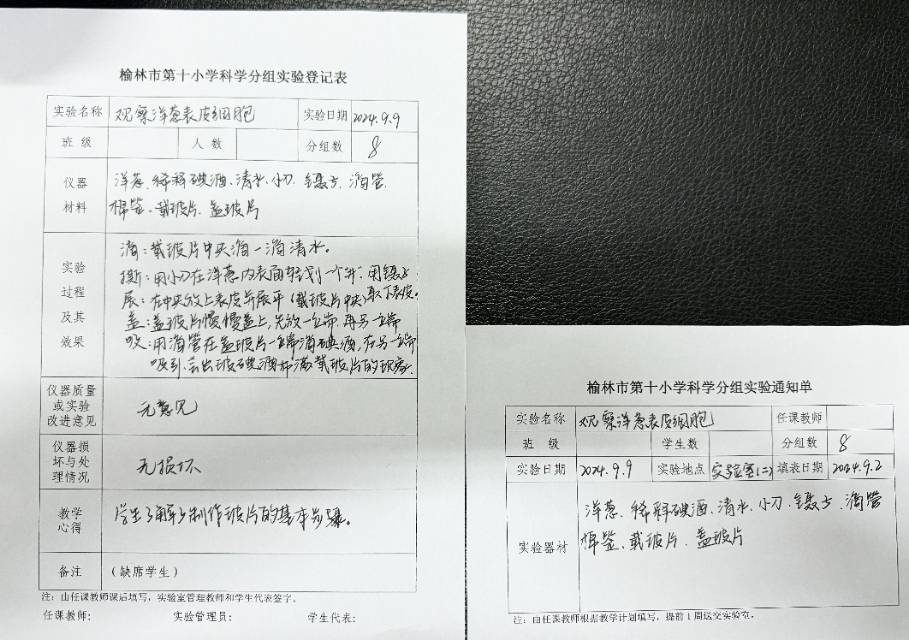 榆林市第十小学科学分组实验登记表
实验名称 观察洋葱表皮细胞 实验日期 2024.9.9
班级 人数 分组数 8
仪器材料 洋葱、稀释碘酒、清水、小刀、镊子、滴管
棉签、载玻片、盖玻片
实验过程及其效果
滴:载玻片中央滴一滴清水。
撕:用小刀在洋葱内表面轻划一个"井",用镊子
取下表皮。
展:在中央放上表皮并展平(载玻片中央)
盖:盖玻片慢慢盖上,先放一端,再另一端
吸:用滴管在盖玻片一端滴碘酒,在另一端
吸引,会出现碘酒布满载玻片的现象。
仪器质量或实验改进意见 无意见
仪器损坏与处理情况 无损坏
教学心得 学生了解了制作玻片的基本步骤。
备注 (缺席学生)
注:由任课教师课后填写,实验室管理教师和学生代表签字。
任课教师: 实验管理员: 学生代表:
榆林市第十小学科学分组实验通知单
实验名称 观察洋葱表皮细胞 任课教师
班级 学生数 分组数 8
实验日期 2024.9.9 实验地点 实验室(二) 填表日期 2024.9.2
实验器材 洋葱、稀释碘酒、清水、小刀、镊子、滴管
棉签、载玻片、盖玻片
注:由任课教师根据教学计划填写,提前1周送交实验室。